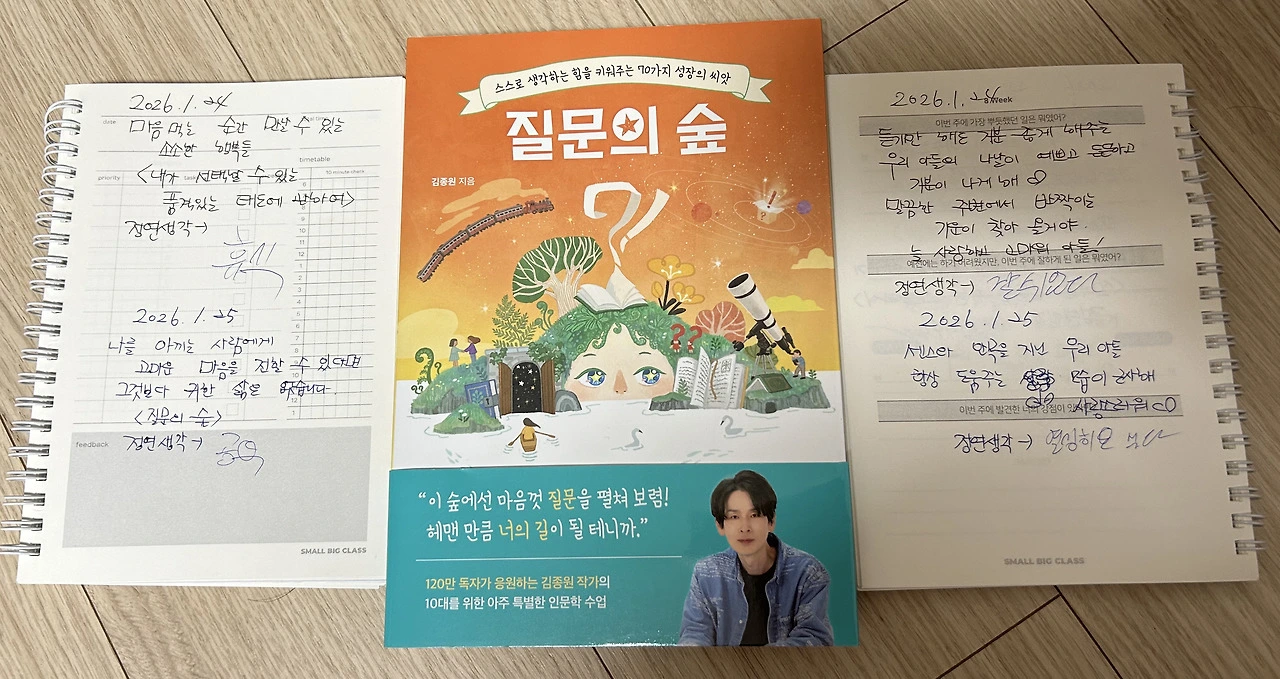 2026.1.24
date
마음먹는 순간 만날 수 있는
소소한 행복들
timetable
priority
task
10 minute check
<내가 선택할 수 있는
품격있는 태도에 관하여>
정연생각→
휴식
2026.1.25
나를 아끼는 사람에게
고마운 마음을 전할 수 있다면
그것보다 귀한 삶은 없습니다.
<질문의 숲>
feedback
정연생각→
SMALL BIG CLASS
스스로 생각하는 힘을 키워주는 70가지 성장의 씨앗
질문의 숲
김종원 지음
“이 숲에선 마음껏 질문을 펼쳐 보렴!
헤맨 만큼 너의 길이 될 테니까.”
120만 독자가 응원하는 김종원 작가의
10대를 위한 아주 특별한 인문학 수업
2026.1.24
Week
이번 주에 가장 뿌듯했던 일은 뭐였어?
듣기만 해도 기분 좋게 해주는
우리 아들의 나날이 예쁘고 든든하고
기분이 나게 해
말끔한 주변에서 반짝이는
기운이 찾아 올거야.
늘 사랑하고 고마워 아들!
예전에는 하기 어려웠지만, 이번 주에 잘하게 된 일은 뭐였어?
정연생각→ 잘 쉬었다
2026.1.25
센스와 안목을 지닌 우리 아들
항상 도움주는 모습이 근사해
사랑스러워
이번 주에 발견한 너의 강점이
정연생각→ 열심히 보다
SMALL BIG CLASS